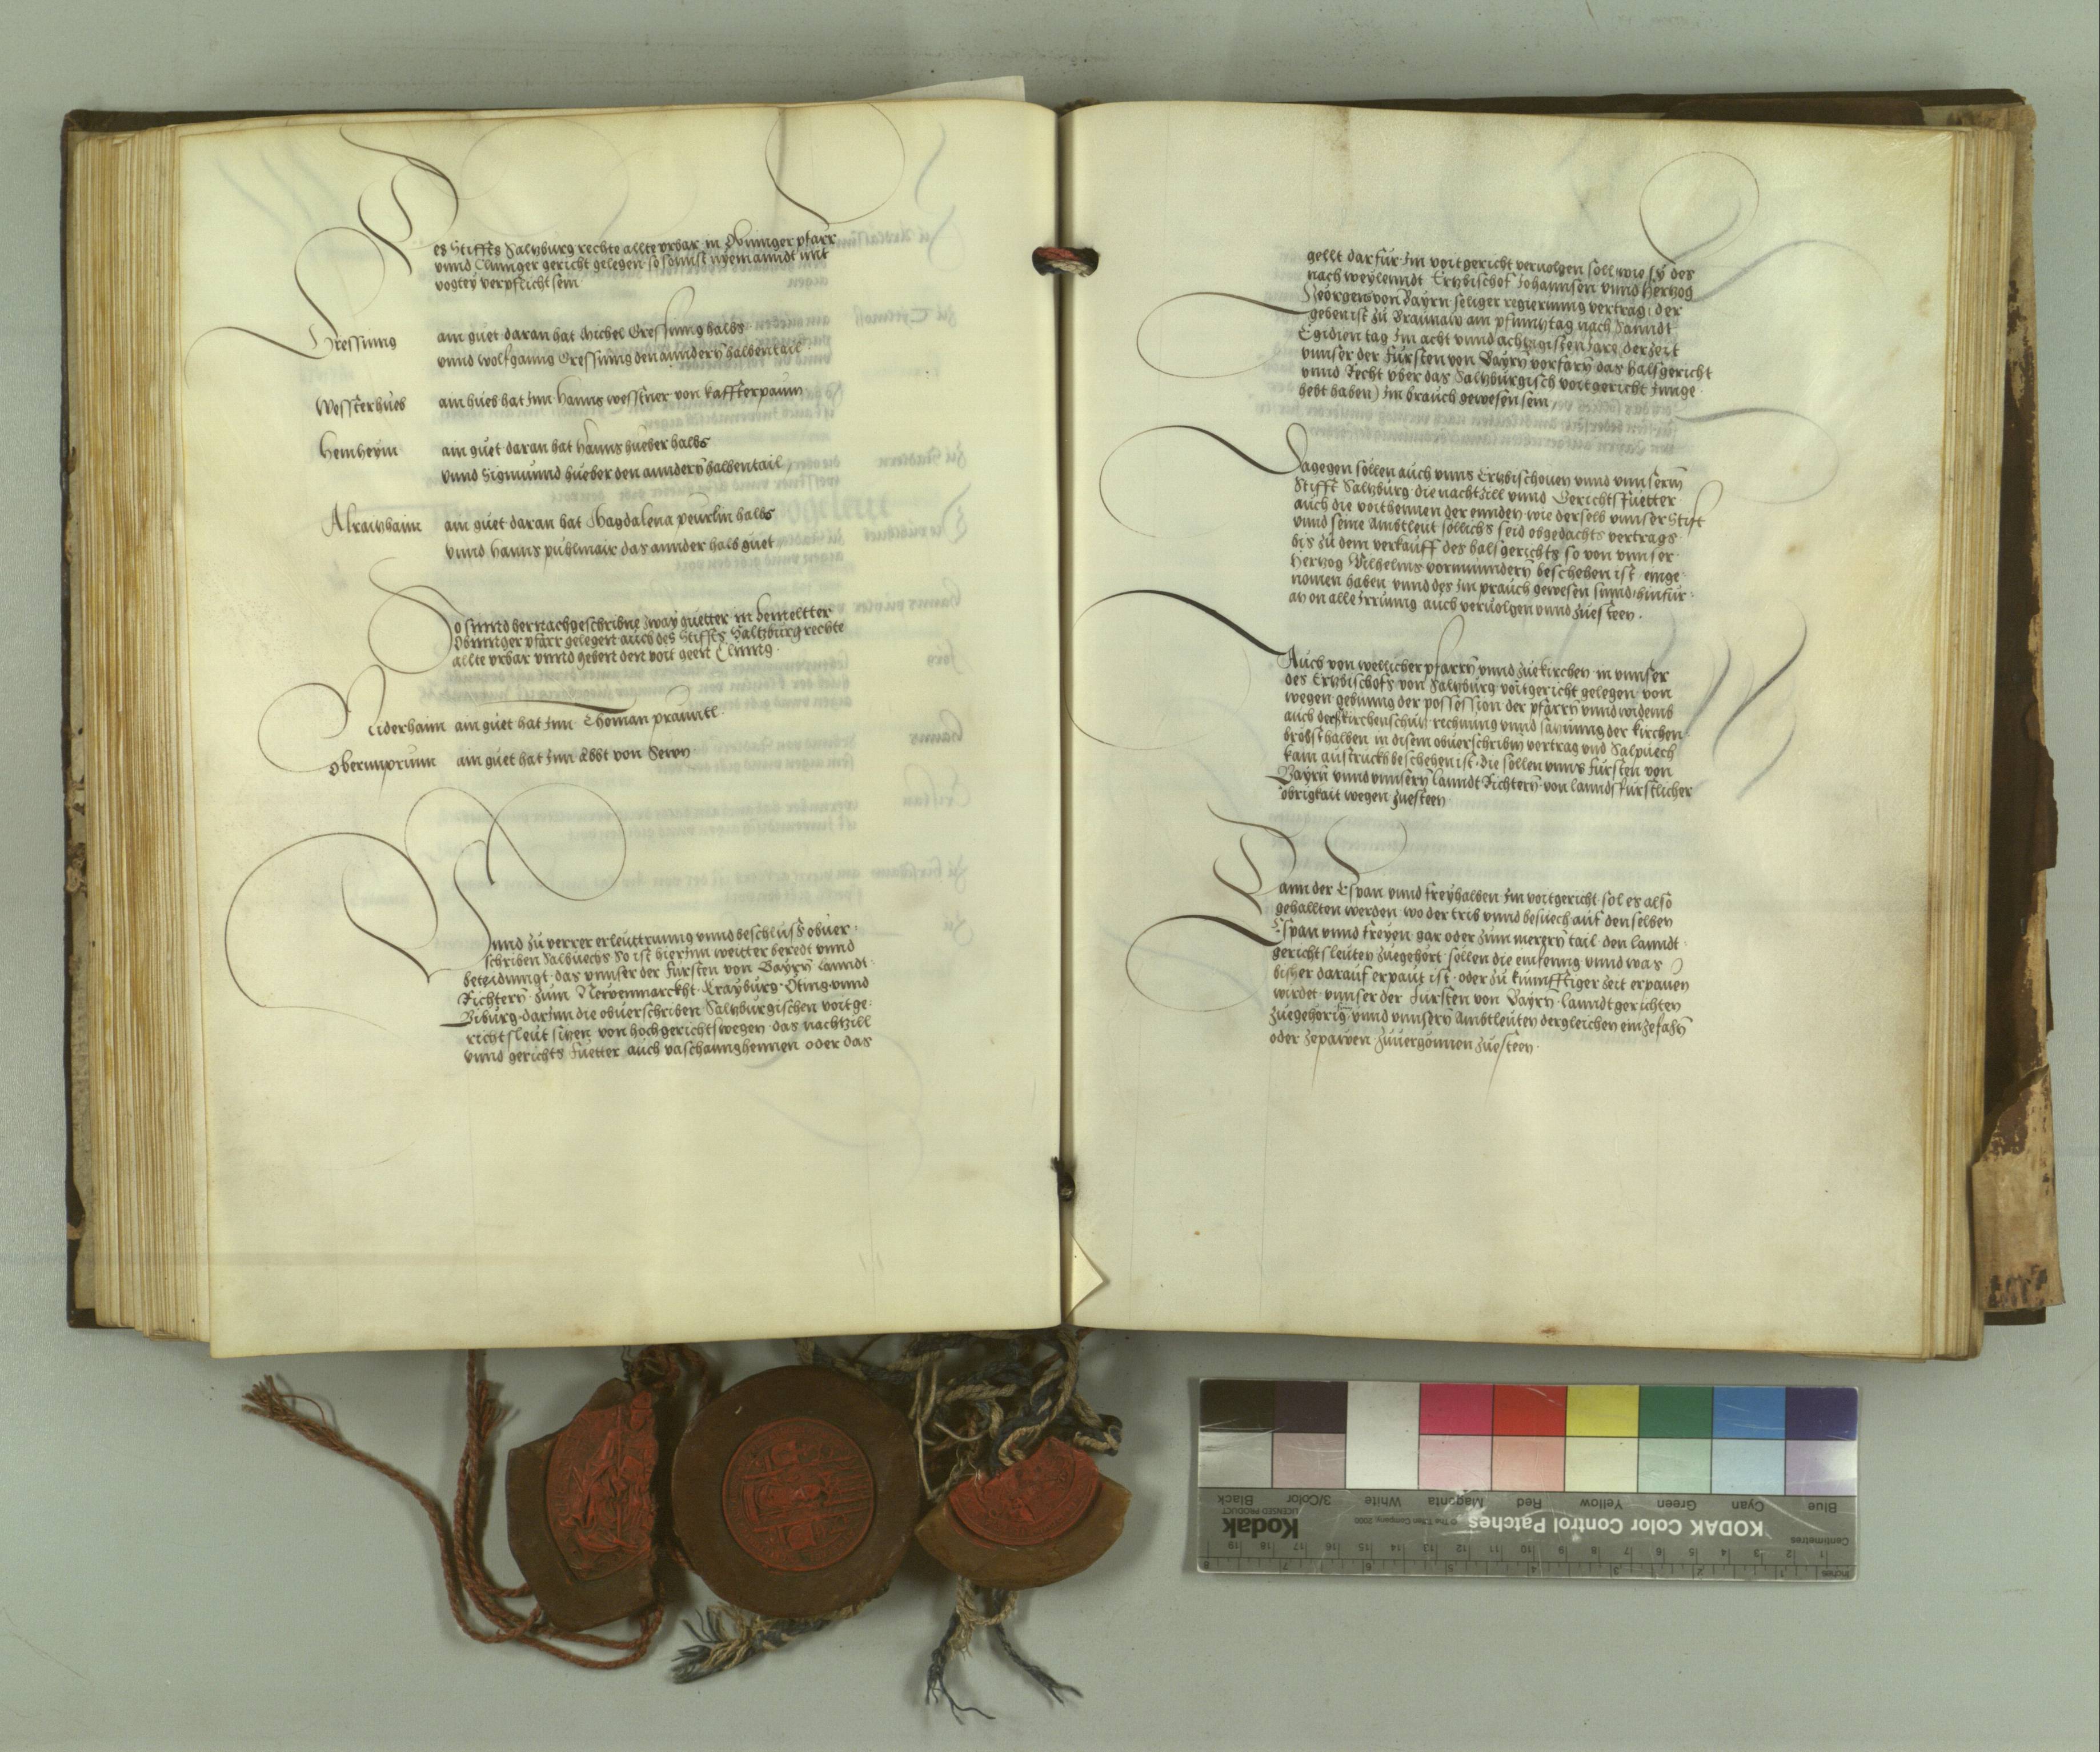 Des Stiffts Saltzburg rechte allte vrbar in Obinger pfarr
vnnd Clinnger gericht gelegen so sonnst nyemanndt mit
vogtey verpflicht sein
Gressinng am guet daran hat Michel Gressinng halbs
vnnd Wolfganng Gressinng den anndern halben tail
Wessterhueb am hueb hat Inn Hanns wesstner von kaffterpaum
Hemheym ain guet daran hat Hanns hueber halbs
vnnd Sigmunnd hueber den anndern halben tail
Alraitzhaim am guet daran hat Magdalena peurlin halbs
vnnd Hanns puhlmair das annder halb guet
So sinnd hernachgeschribne zway guetter in bemeltter
Obinnger pfarr gelegen auch des Stiffts Saltzburg rechte
allte vrbar vnnd geben den voit geen Clinng
Niderhaim am guet hat Inn Thoman prauntl
Obernnprunn ain guet hat Inn Abbt von Sewn
Vnnd zu verrer erleuttrunng vnnd beschluss obuer
schriben Salbuechs So ist hierinn weitter beredt vnnd
beteidinngt das vnnser der Fürsten von Bayrn lanndt
Richtern zum Newenmarckht Crayburg Oting vnnd
Biburg darInn die obuerschriben Saltzburgischen voitge
richtsleut sitzen von hochgerichts wegen das nachtzill
vnnd gerichts Fuetter auch vaschannghennen oder das
gellt darfür Im voitgericht veruolgen soll wie sy des
nach weylenndt Ertzbischof Johannsen vnnd Hertzog
Georgens von Bayrn seliger regierunng vertrag der
geben ist zu Braunaw am pfinntztag nach Sanndt
Egidien tag Im acht vnnd achtzigisten Jare der zeit
vnnser der Fürsten von Bayrn vorfarn das halsgericht
vnnd Recht vber das Saltzburgisch voitgericht Innge
hebt haben) Im brauch gewesen sein
Dagegen sollen auch vnns Ertzbischouen vnnd vnnserm
Stifft Saltzburg die nachtzill vnnd Gerichtsfuetter
auch die voithennen der ennden wie derselb vnnser Stift
vnnd seine Ambtleut sollichs seid obgedachts vertrags
bis zu dem verkauff des halsgerichts so von vnnser
Hertzog Wilhelms vormunndern beschehen ist einge
nomen haben vnnd des Im prauch gewesen sinnd hinfür
an on alle Irrunng auch veruolgen vnnd zuesteen.
Auch von wellicher pfarrn vnnd zuekirchen in vnnser
des Ertzbischofs von Saltzburg voitgericht gelegen von
wegen gebunng der possession der pfarrn vnnd widems
auch der kirchenschutz rechnung vnnd satzunng der kirchen
bröbst halben in disem obuerschriben vertrag vnd Salpuech
kain austruckh beschehen ist die sollen vnns Fürsten von
Bayrn vnnd vnnsern lanndt Richtern von lanndsfürstlicher
obrigkait wegen zuesteen
Dann der Espan vnnd freyhalben Im voitgericht sol es also
gehallten werden wo der trib vnnd besuech auf denselben
Espan vnnd freyen gar oder zum merern tail den lanndt
gerichtsleuten zuegehört sollen die einfenng vnnd was
bisher darauf erpaut ist oder zu kunfftiger zeit erpauen
wirdet vnnser der Fürsten von Bayrn lanndtgerichten
zuegehörig vnnd vnnsern Ambtleuten dergleichen einzefahn
oder zepawen zuuergönnen zuesteen
Blue Cyan Green Yellow Red Magenta White 3/Color Black
KODAK Color Control Patches
© The Tiffen Company, 2000
Kodak
LICENSED PRODUCT
Centimetres 1 2 3 4 5 6 7 8 9 10 11 12 13 14 15 16 17 18 19
Inches 1 2 3 4 5 6 7 8